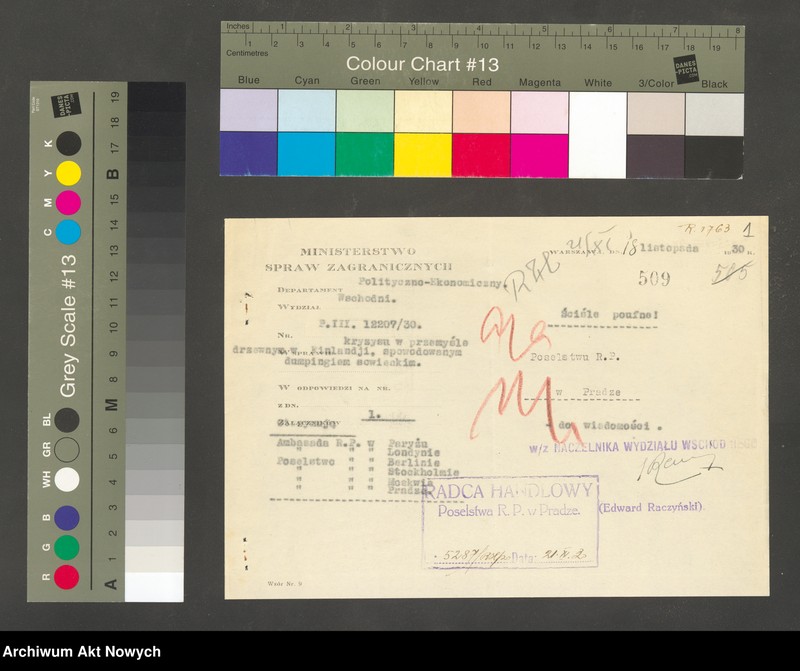 Inches 1 2 3 4 5 6 7 8
Centimetres 1 2 3 4 5 6 7 8 9 10 11 12 13 14 15 16 17 18 19
Colour Chart #13
DANES-PICTA
Blue Cyan Green Yellow Red Magenta White 3/Color Black
Grey Scale #13
DANES-PICTA
R G B WH GR BL C M Y K
A 1 2 3 4 5 6 M 8 9 10 11 12 13 14 15 B 17 18 19
R.1763 1
MINISTERSTWO
SPRAW ZAGRANICZNYCH
WARSZAWA, DN. 18 listopada 1930 r.
21/XI
509
565
DEPARTAMENT Polityczno-Ekonomiczny.
WYDZIAŁ Wschodni.
Ściśle poufne!
NR. P.III. 12207/30.
kryzysu w przemyśle
drzewnym w Finlandji, spowodowanym
dumpingiem sowieckim.
Poselstwu R.P.
w Pradze
W ODPOWIEDZI NA NR.
Z DN.
1.
- do wiadomości.
w/z NACZELNIKA WYDZIAŁU WSCHODNIEGO
Ambasada R.P. w Paryżu
" " " Londynie
Poselstwo " " Berlinie
" " " Stockholmie
" " " Moskwie
" " " Pradze
(Edward Raczyński).
RADCA HANDLOWY
Poselstwa R. P. w Pradze.
Data:
Wzór Nr. 9
Archiwum Akt Nowych